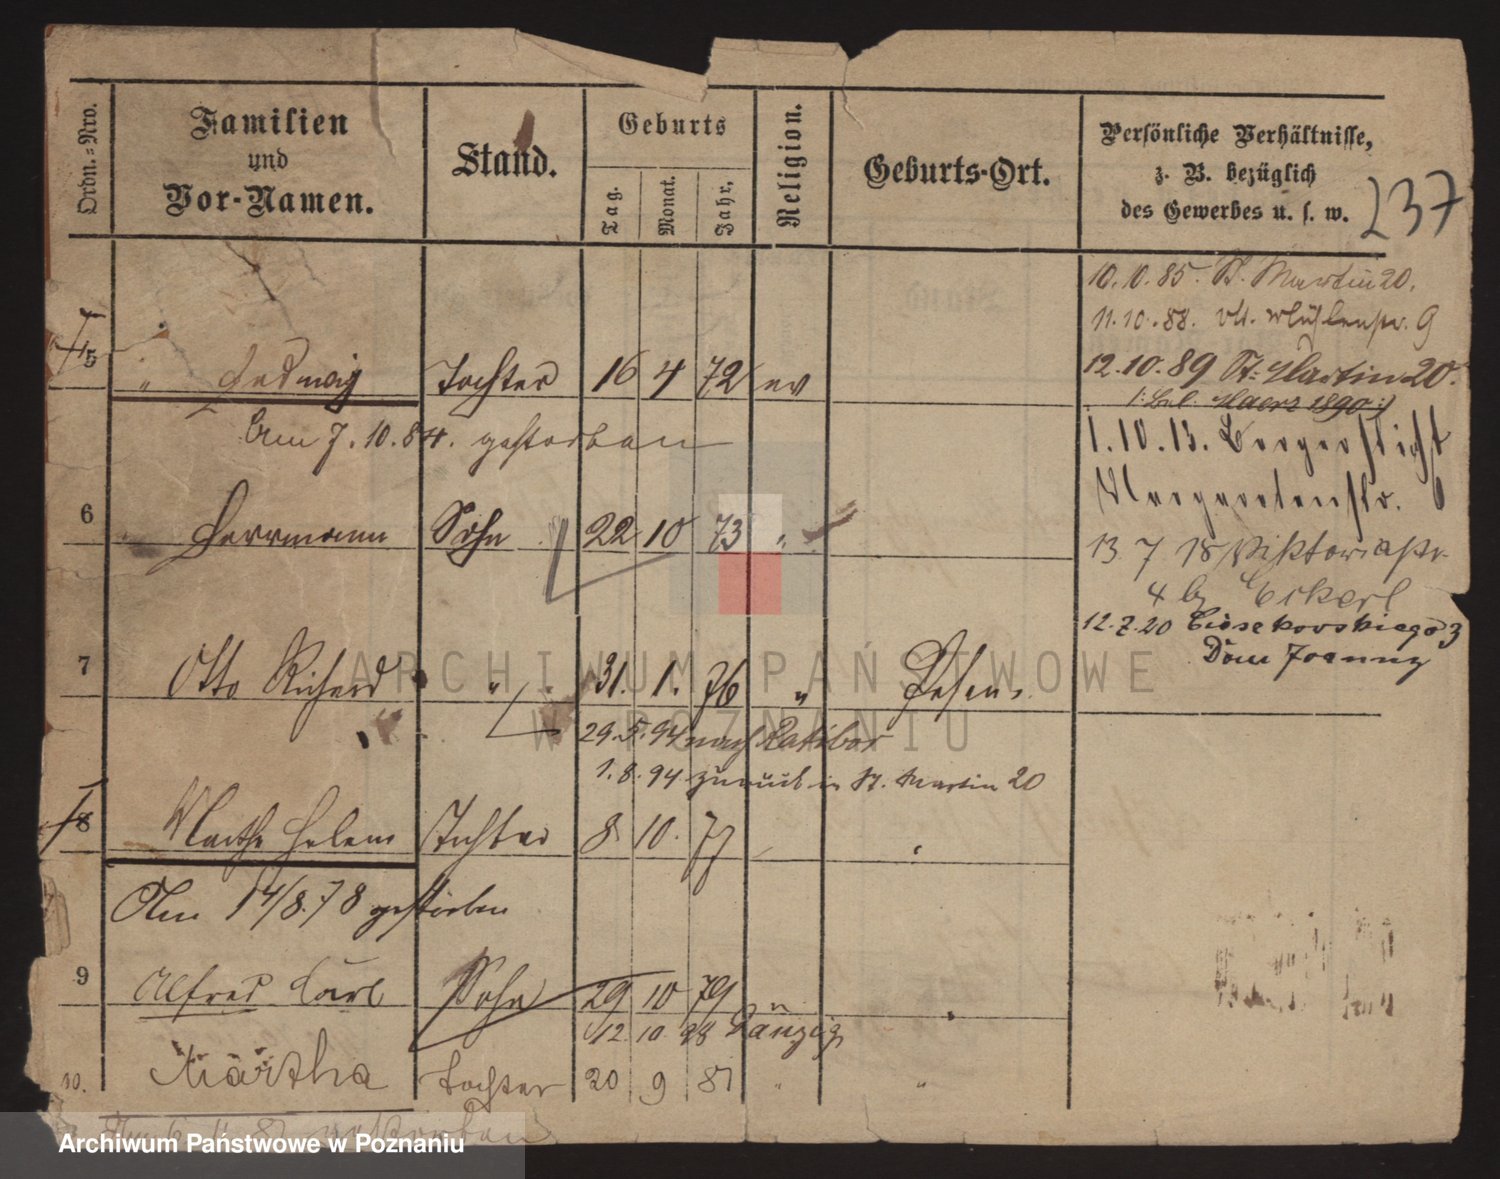 Ordn.-Nro.
Familien
und
Vor-Namen.
Stand.
Geburts
Tag.
Monat.
Jahr,
Religion.
Geburts-Ort.
Persönliche Verhältnisse,
z. B. bezüglich
des Gewerbes u. s. w.
237
10.10.85. St. Martin 20.
11.10.88. Mühlenstr. 9
12.10.89 St. Martin 20.
5 " Hedwig Tochter 16 4 72 ev
Am 7.10.84. gestorben
1.10.13.
13 7 18 Viktoriastr.
4 b/ Eckert
6 " Herrmann Sohn 22 10 73 "
12.7.20 Cieszkowskiego 3
Dom Joanny
7 Otto Richard " 31. 1. 76 " Posen
29.5.94 nach Ratibor
1.8.94 zurück in St. Martin 20
8 Martha Helene Tochter 8 10. 77
Am 14/8.78 gestorben
9 Alfred Carl Sohn 29 10 79
12. 10 98 Danzig
10. Martha Tochter 20 9 81 " "
gestorben
ARCHIWUM PAŃSTWOWE
W POZNANIU
Archiwum Państwowe w Poznaniu